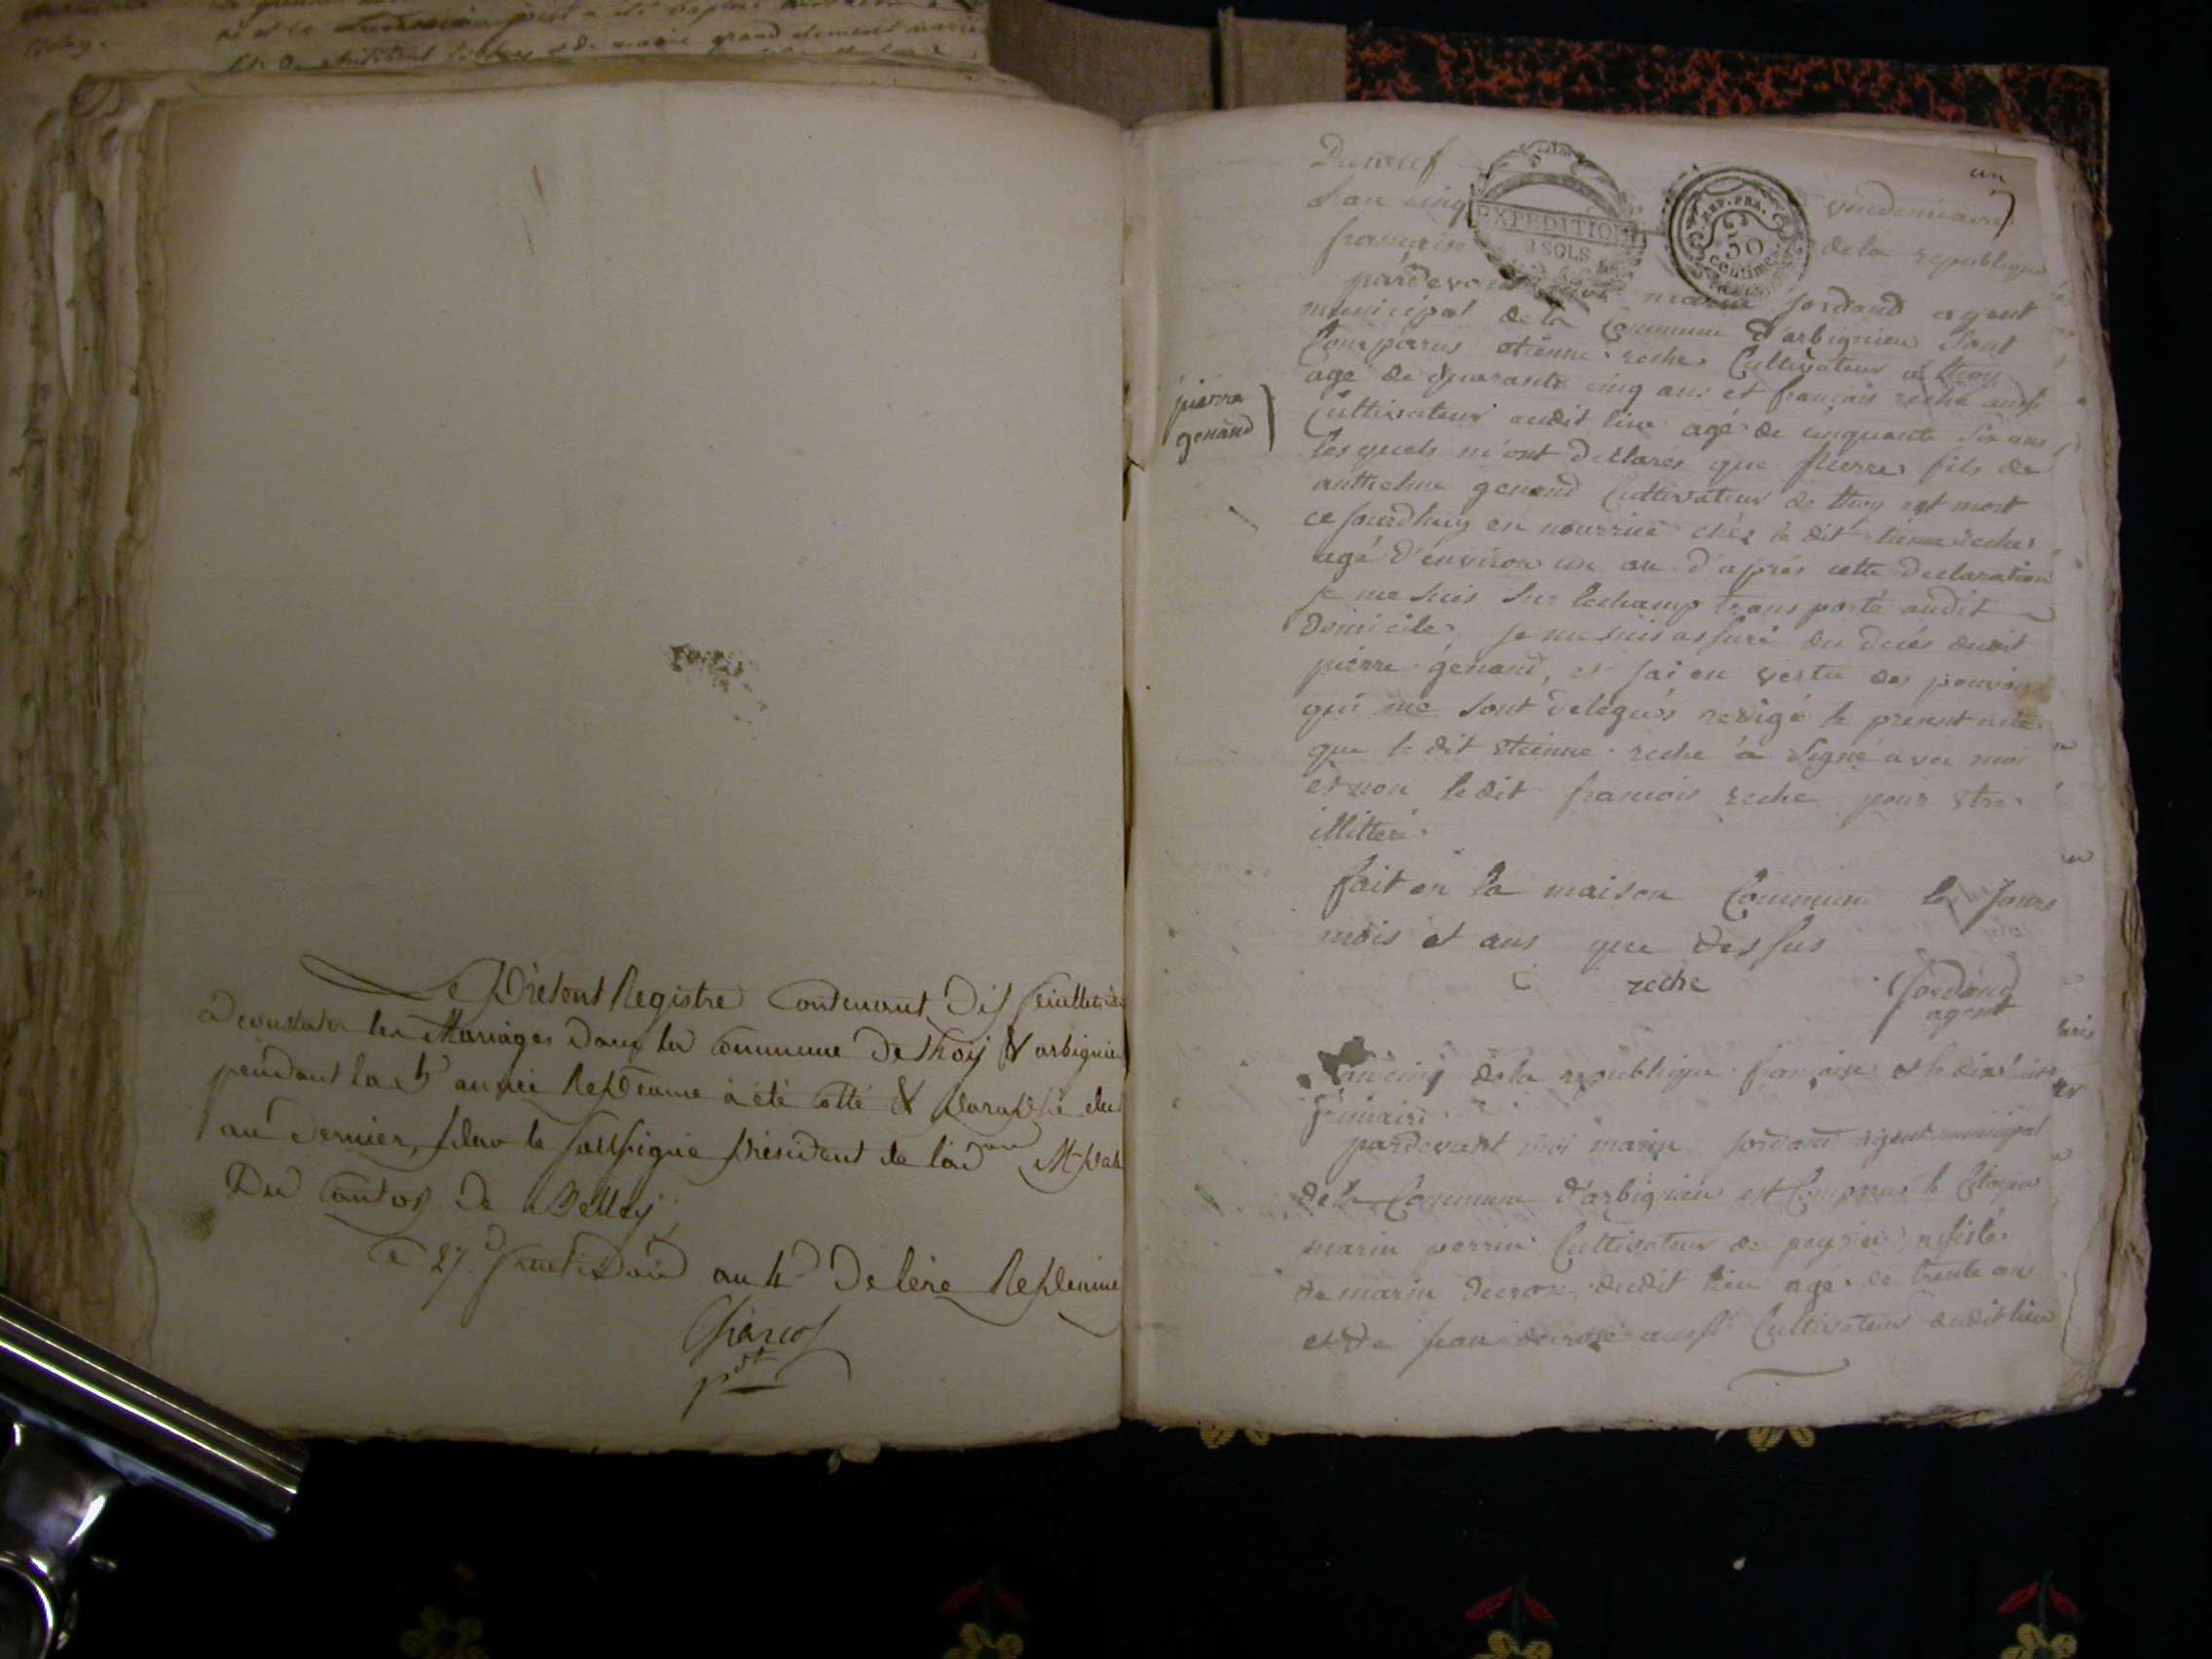 Le Présent Registre Contenant Dis feuillets
a Constater les Mariages Dans la Commune De thoij & arbignieu
pendant la 5e année Repne a été Cotté & Paraphé du
au Dernier, par le Soussigné président de l'adon Mpale
Du Canton De Belley,
Le 27 fructidor an 4e De l'ère Repne
pdt
un
Du neuf vendemiaire
L'an cinq de la republique
française
EXPEDITION
3 SOLS
REP. FRA.
50
centimes
pardevant moi marin Jordand agent
municipal de la Commune d'arbignieu Sont
Comparus etienne reche Cultivateur a thoy
agé de quarante cinq ans et françois reche aussi
Cultivateur audit lieu agé de cinquante six ans
pierre
genand
les quels m'ont declarés que pierre fils de
anthelme genand Cultivateur de thoy est mort
ce jourdhuy en nourrice chés le dit etienne reche
agé d'environ un an d'aprés cette declaration
je me suis Sur lechamp trans porté audit
Domicile je me suis assuré du decés dudit
pierre genand, et j'ai en vertu des pouvoirs
qui me sont delegués redigé le present acte
que le dit etienne reche a Signé avec moi
et non ledit francois reche pour etre
illitteré
fait en la maison Commune les Jours
mois et ans que dessus
reche Jordand
agent
L'an cinq de la republique française et le dix huit
frimaire
pardevant moi marin Jordand agent municipal
de la Commune d'arbignieu est Comparus le Citoyen
marin perrin Cultivateur de peyzieu assistés
de marin decroze dudit lieu agé de trente ans
et de jean decroze aussi Cultivateur dudit lieu